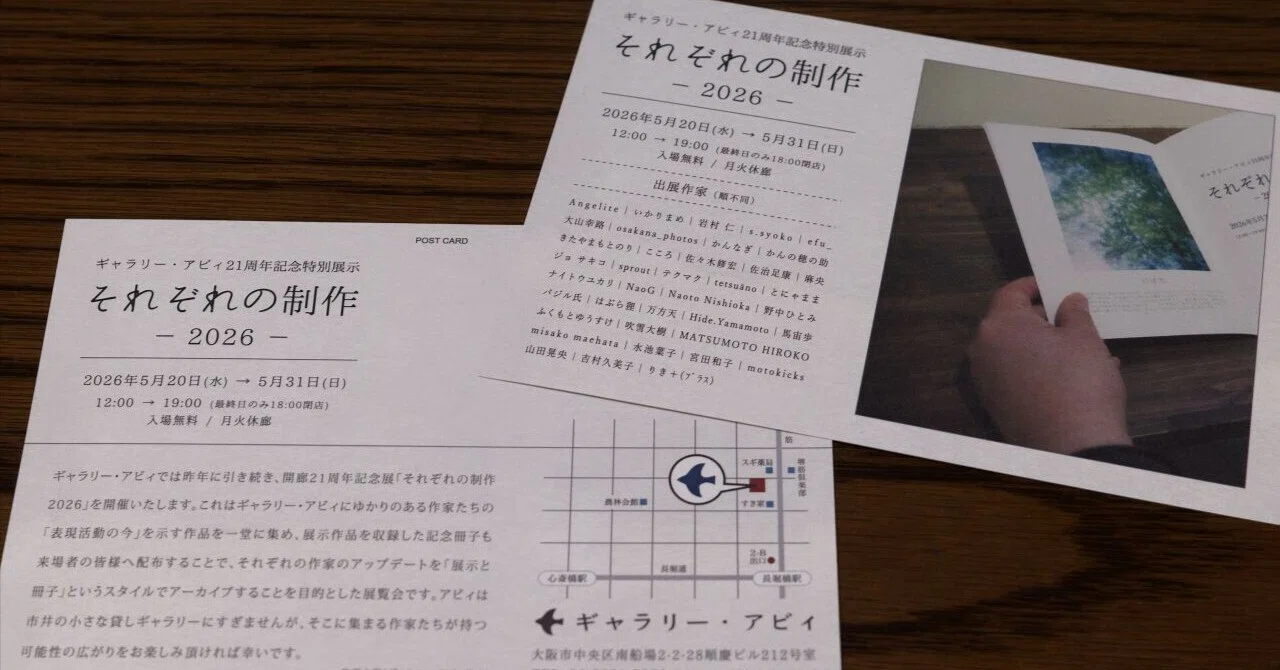 ギャラリー・アビィ21周年記念特別展示
それぞれの制作
― 2026 ―
2026年5月20日(水) → 5月31日(日)
12:00 → 19:00 (最終日のみ18:00閉店)
入場無料 / 月火休廊
出展作家 (順不同)
Angelite | いかりまめ | 岩村 仁 | s.syoko | efu_
大山幸路 | osakana_photos | かんなぎ | かんの穂の助
きたやまもとのり | こころ | 佐々木修宏 | 佐治足康 | 麻央
ジョ サキコ | sprout | テクマク | tetsuāno | とにゃまま
ナイトウユカリ | NaoG | Naoto Nishioka | 野中ひとみ
バジル氏 | はぶら狸 | 万方天 | Hide.Yamamoto | 馬宙歩
ふくもとゆうすけ | 吹雪大樹 | MATSUMOTO HIROKO
misako maehata | 水池葉子 | 宮田和子 | motokicks
山田晃央 | 吉村久美子 | りき+(プラス)
それぞれ
POST CARD
ギャラリー・アビィ21周年記念特別展示
それぞれの制作
― 2026 ―
2026年5月20日(水) → 5月31日(日)
12:00 → 19:00 (最終日のみ18:00閉店)
入場無料 / 月火休廊
ギャラリー・アビィでは昨年に引き続き、開廊21周年記念展「それぞれの制作
2026」を開催いたします。これはギャラリー・アビィにゆかりのある作家たちの
「表現活動の今」を示す作品を一堂に集め、展示作品を収録した記念冊子も
来場者の皆様へ配布することで、それぞれの作家のアップデートを「展示と
冊子」というスタイルでアーカイブすることを目的とした展覧会です。アビィは
市井の小さな貸しギャラリーにすぎませんが、そこに集まる作家たちが持つ
可能性の広がりをお楽しみ頂ければ幸いです。
筋
スギ薬局
堺筋倶楽部
農林会館
すき家
2-B
出口
長堀通
心斎橋駅
長堀橋駅
ギャラリー・アビィ
大阪市中央区南船場2-2-28順慶ビル212号室